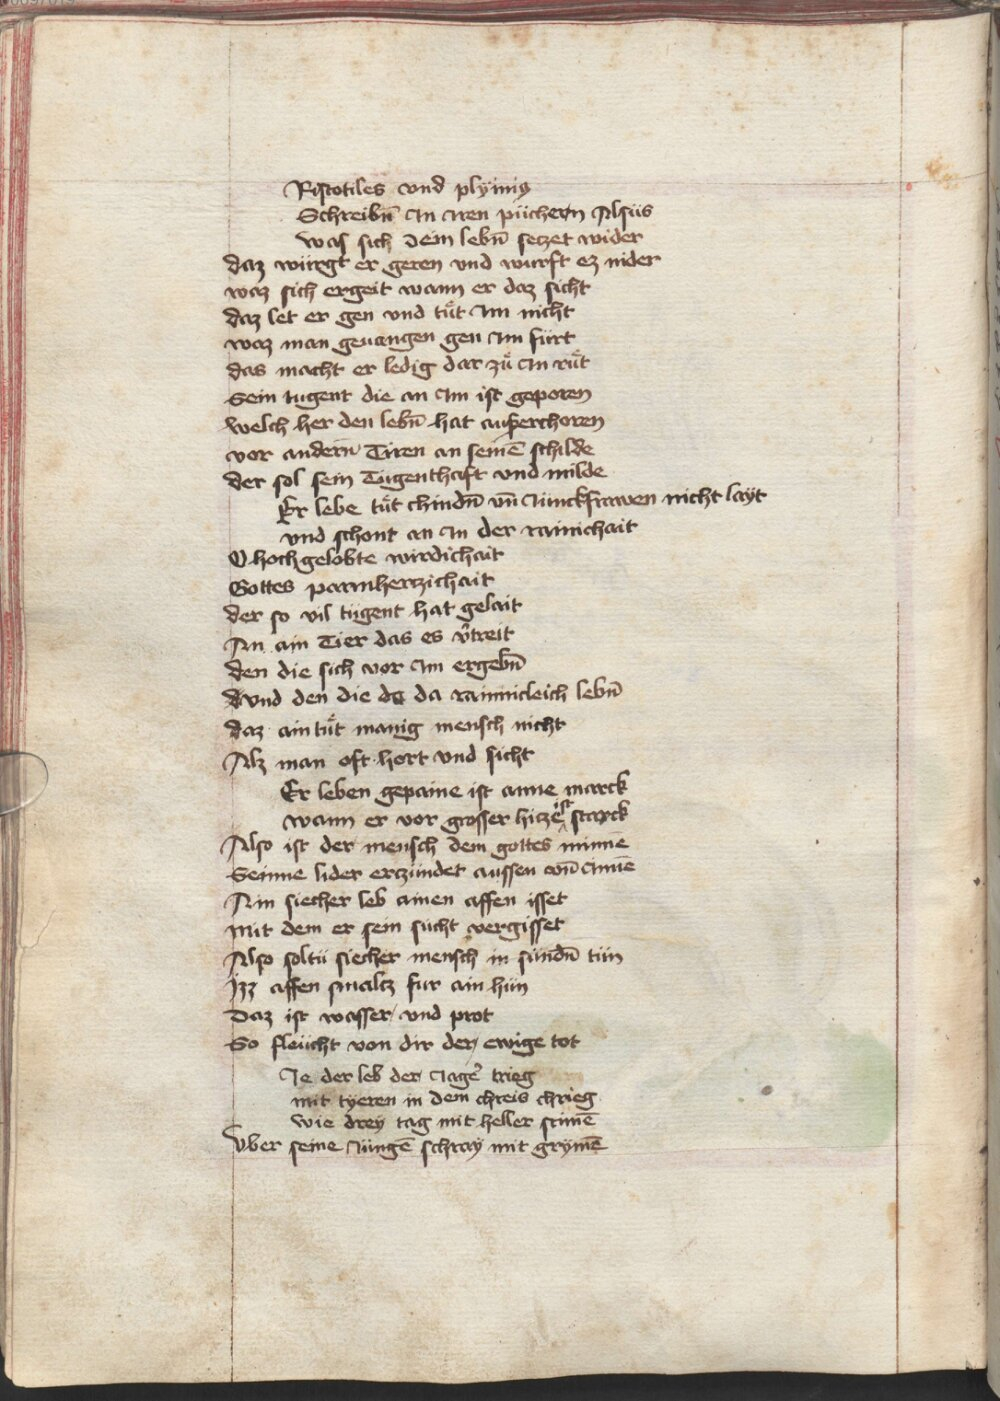 Ristotiles vnd plynius
Schreibn̄ In Iren püchern Alsüs
Was sich dem lebn̄ seczet wider
daz würgt er geren vnd wurft ez nider
waz sich ergeit wann er daz sicht
daz let er gen vnd tůt Im nicht
waz man geuangen gen Im fürt
das macht er ledig dar zů In růt
Sein tugent die an Im ist geporen
welch her den lebn̄ hat auserchoren
vor andern Tiren an seinē schilde
der sol sein Tugenthaft vnd milde
Er lebe tůt chindn̄ vn̄ Iunckfrawen nicht layt
vnd schont an In der rainichait
O hochgelobte wirdichait
Gottes parmherczichait
der so vil tugent hat gelait
An ain Tier das es v̄treit
den die sich vor Im ergebn̄
vnd den die da rainicleich lebn̄
daz ain tůt manig mensch nicht
Alz man oft hort vnd sicht
Er leben gepaine ist anne marck
wann er vor grosser hicze ist starck
Also ist der mensch dem gottes minnē
Seinne lider erzündet aussen vn̄ Innē
Ain siecher leb ainen affen isset
mit dem er sein sücht vergisset
Also soltü siecher mensch in sündn̄ tün
Izz affen smalcz fur ain hün
Daz ist wasser vnd prot
So fleücht von dir der ewige tot
Ie der leb der Iag͛ trieg
mit tyeren in dem chreis chrieg
wie drey tag mit heller stimē
Vber seine Iüngē schray mit grymē